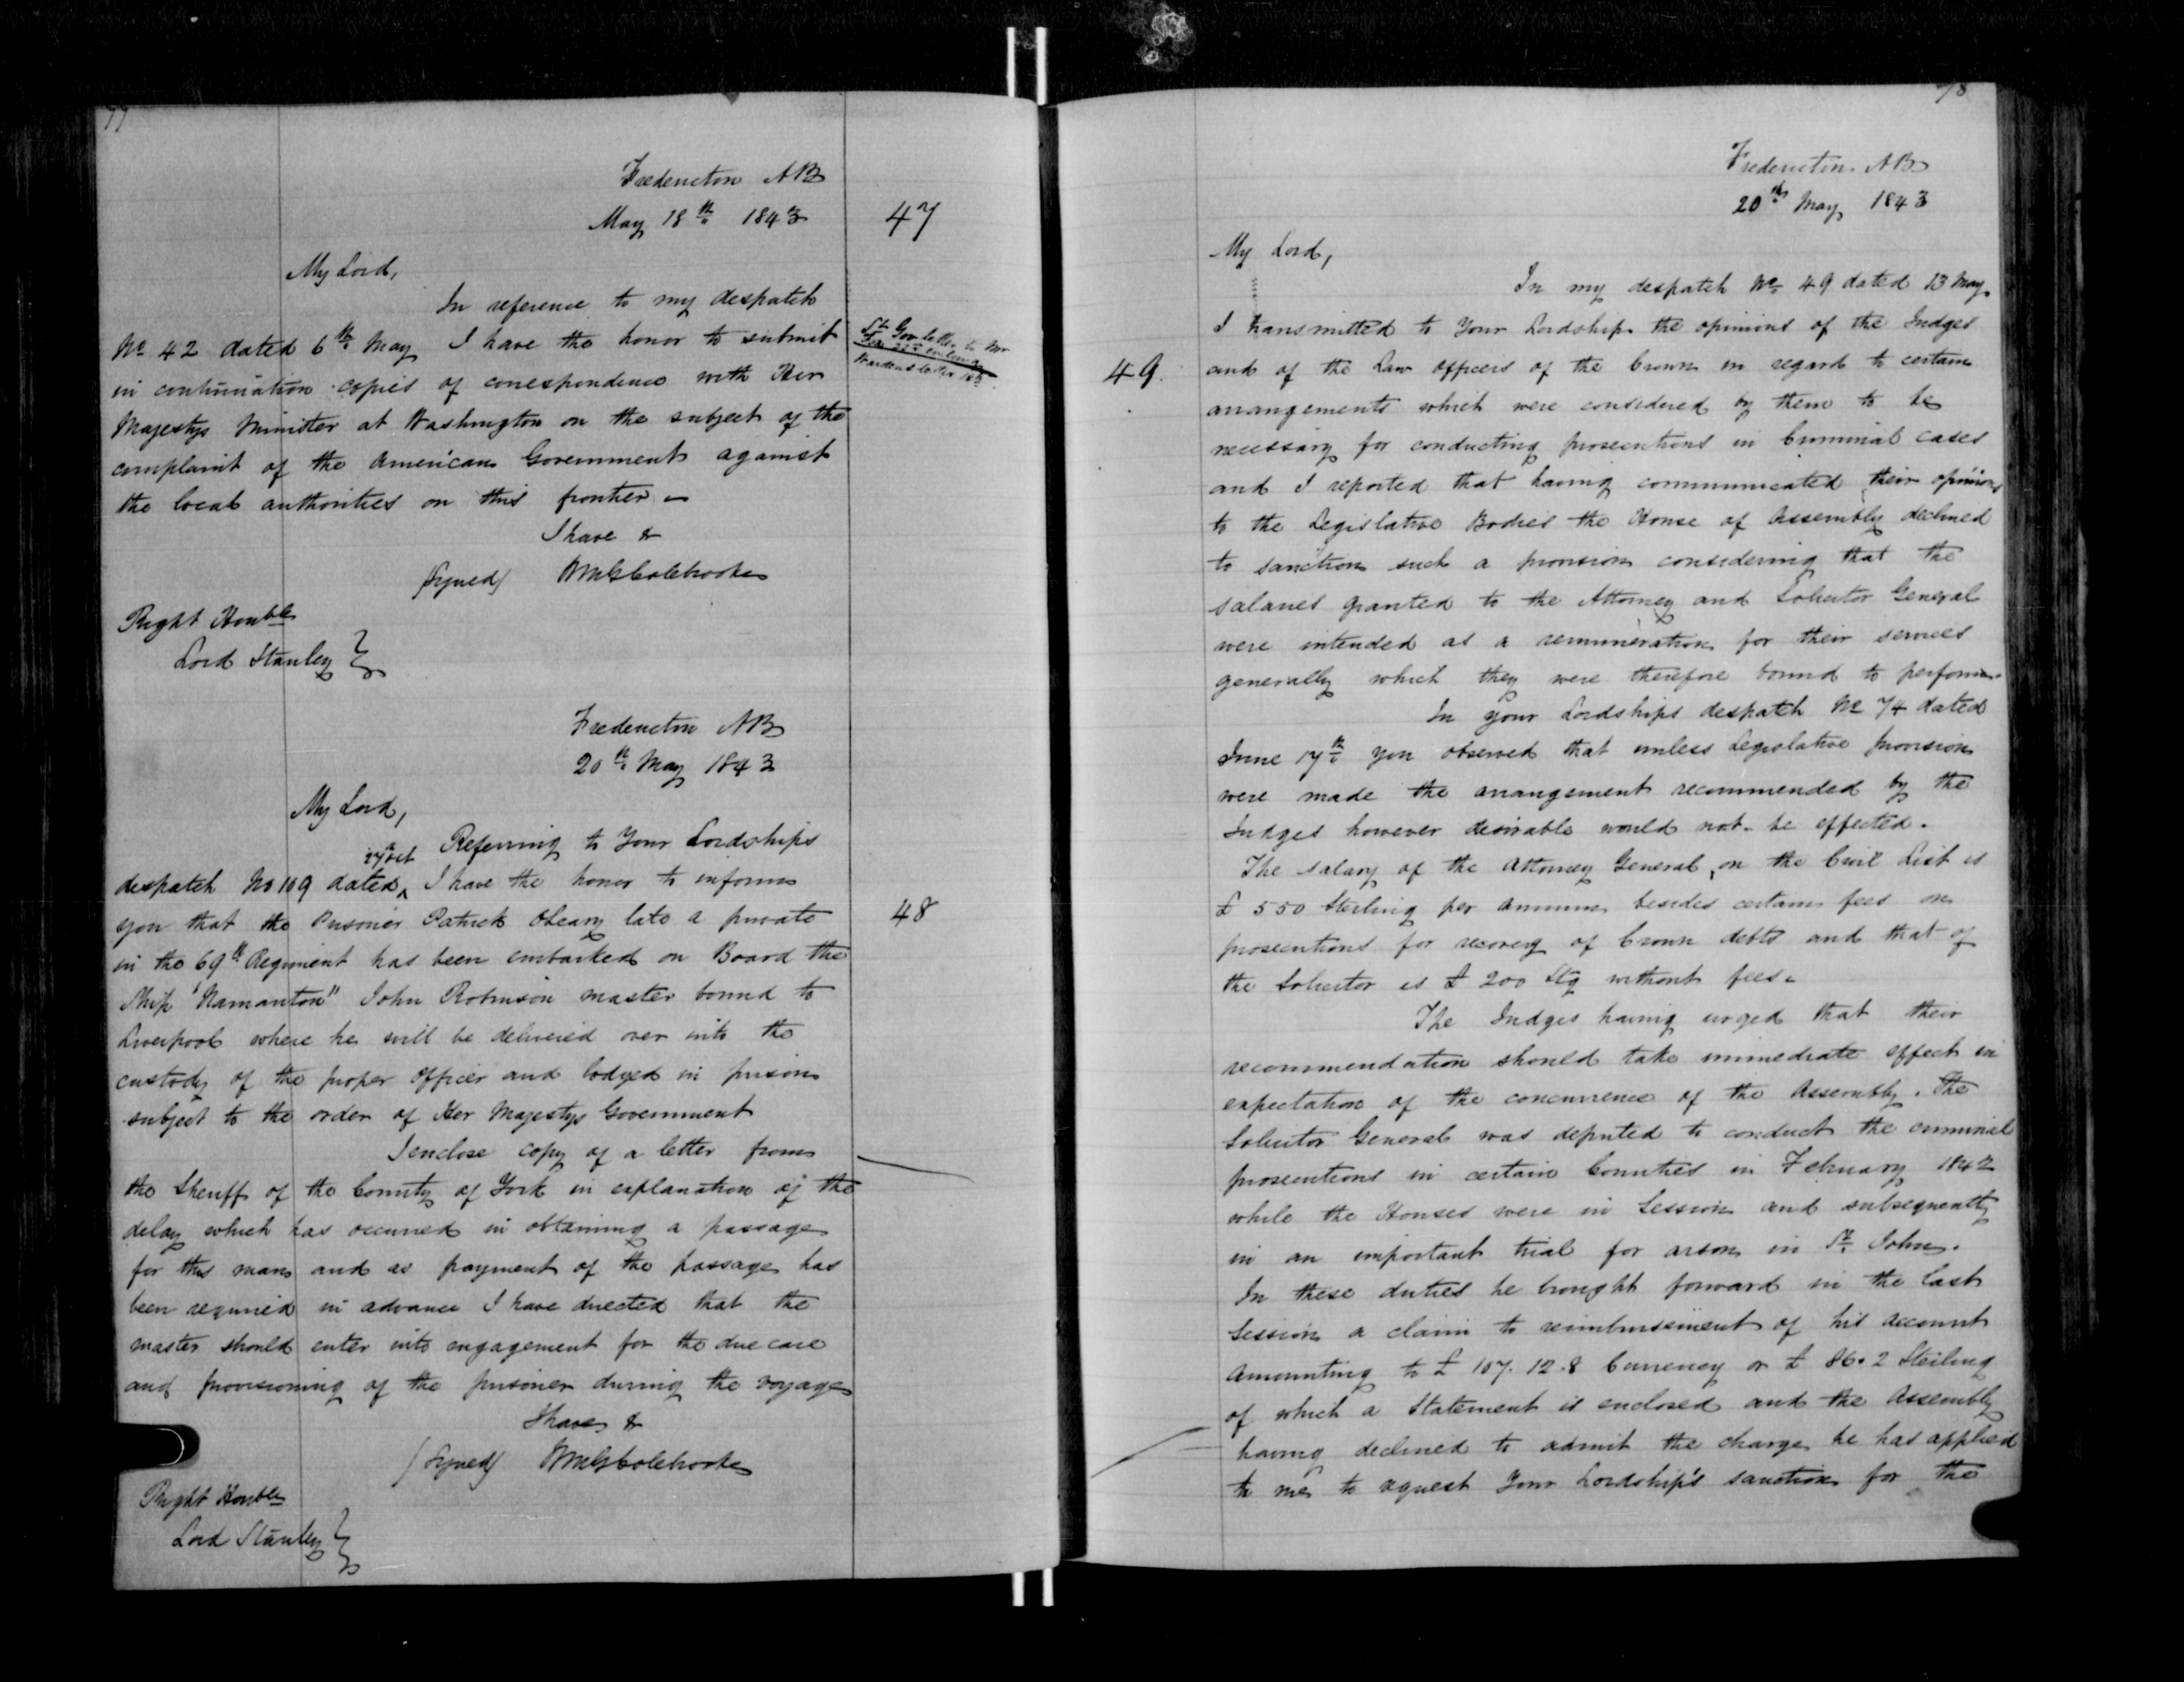 77
Fredericton NB
May 18th 1843
47
My Lord,
In reference to my despatch
No 42 dated 6th May I have the honor to submit
in continuation copies of correspondence with Her
Majestys Minister at Washington on the subject of the
complaint of the American Government against
the local authorities on this frontier
I have &
(Signed) WMGColebrooke
Right Honble
Lord Stanley
Lt Gov letter to Mr
Fredericton NB
20th May 1843
My Lord,
Referring to Your Lordships
27th Oct
despatch No 109 dated I have the honor to inform
48
you that the Prisoner Patrick OLeary late a private
in the 69th Regiment has been embarked on Board the
Ship "Ramanton" John Robinson master bound to
Liverpool where he will be delivered over into the
custody of the proper officer and lodged in prison
subject to the order of Her Majestys Government
I enclose copy of a letter from
the Sheriff of the County of York in explanation of the
delay which has occurred in obtaining a passage
for this man and as payment of the passage has
been required in advance I have directed that the
master should enter into engagement for the due care
and provisioning of the prisoner during the voyage
I have &
(Signed) WMGColebrooke
Right Honble
Lord Stanley
78
Fredericton NB
20th May 1843
My Lord,
In my despatch No 49 dated 13 May
I transmitted to Your Lordship the opinions of the Judges
49.
and of the Law officers of the Crown in regard to certain
arrangements which were considered by them to be
necessary for conducting prosecutions in Criminal cases
and I reported that having communicated their opinions
to the Legislative Bodies the House of Assembly declined
to sanction such a provision considering that the
salaries granted to the Attorney and Solicitor General
were intended as a remuneration for their services
generally which they were therefore bound to perform.
In your Lordships despatch No 74 dated
June 17th you observed that unless Legislative provision
were made the arrangement recommended by the
Judges however desirable would not be effected.
The salary of the Attorney General, on the Civil List is
£ 550 Sterling per Annum besides certain fees on
prosecutions for recovery of Crown debts and that of
the Solicitor is £ 200 Stg without fees.
The Judges having urged that their
recommendation should take immediate effect in
expectation of the concurrence of the Assembly. The
Solicitor General was deputed to conduct the criminal
prosecutions in certain Counties in February 1842
while the Houses were in Session and subsequently
in an important trial for arson in St. John.
In these duties he brought forward in the last
Session a claim to reimbursement of his account
Amounting to £ 107. 12. 8 Currency or £ 86. 2 Sterling
of which a Statement is enclosed and the Assembly
having declined to admit the charge he has applied
to me to request Your Lordship's sanction for the